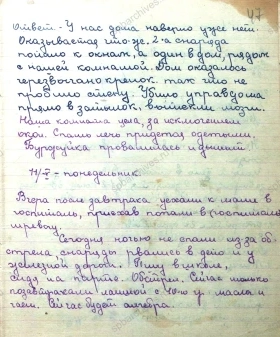 47
Ответ: У нас дома наверно уже нет.
Оказывается что-де, 2-а снаряда
попало к окнам, а один в дом, рядом
с нашей комнатой. Дом оказалось
черезвычайно крепок. так что не
пробило стену. Убило управдома
прямо в затылок, вытекли мозги.
Наша комната цела, за исключением
окон. Спать лечь придется одетыми,
Буржуйка провалилась и дымит
понедельник.
Вчера после завтрака уехали к маме в
госпиталь, приехав попали в (госпитале)
Сегодня ночью не спали из за об
стрела снаряды рвались в депо и у
железной дороги. Пишу в школе,
сидя на парте. Обстрел. Сейчас только
позавтракали лапшой с маслом и
чаем. Сейчас будет алгебра.